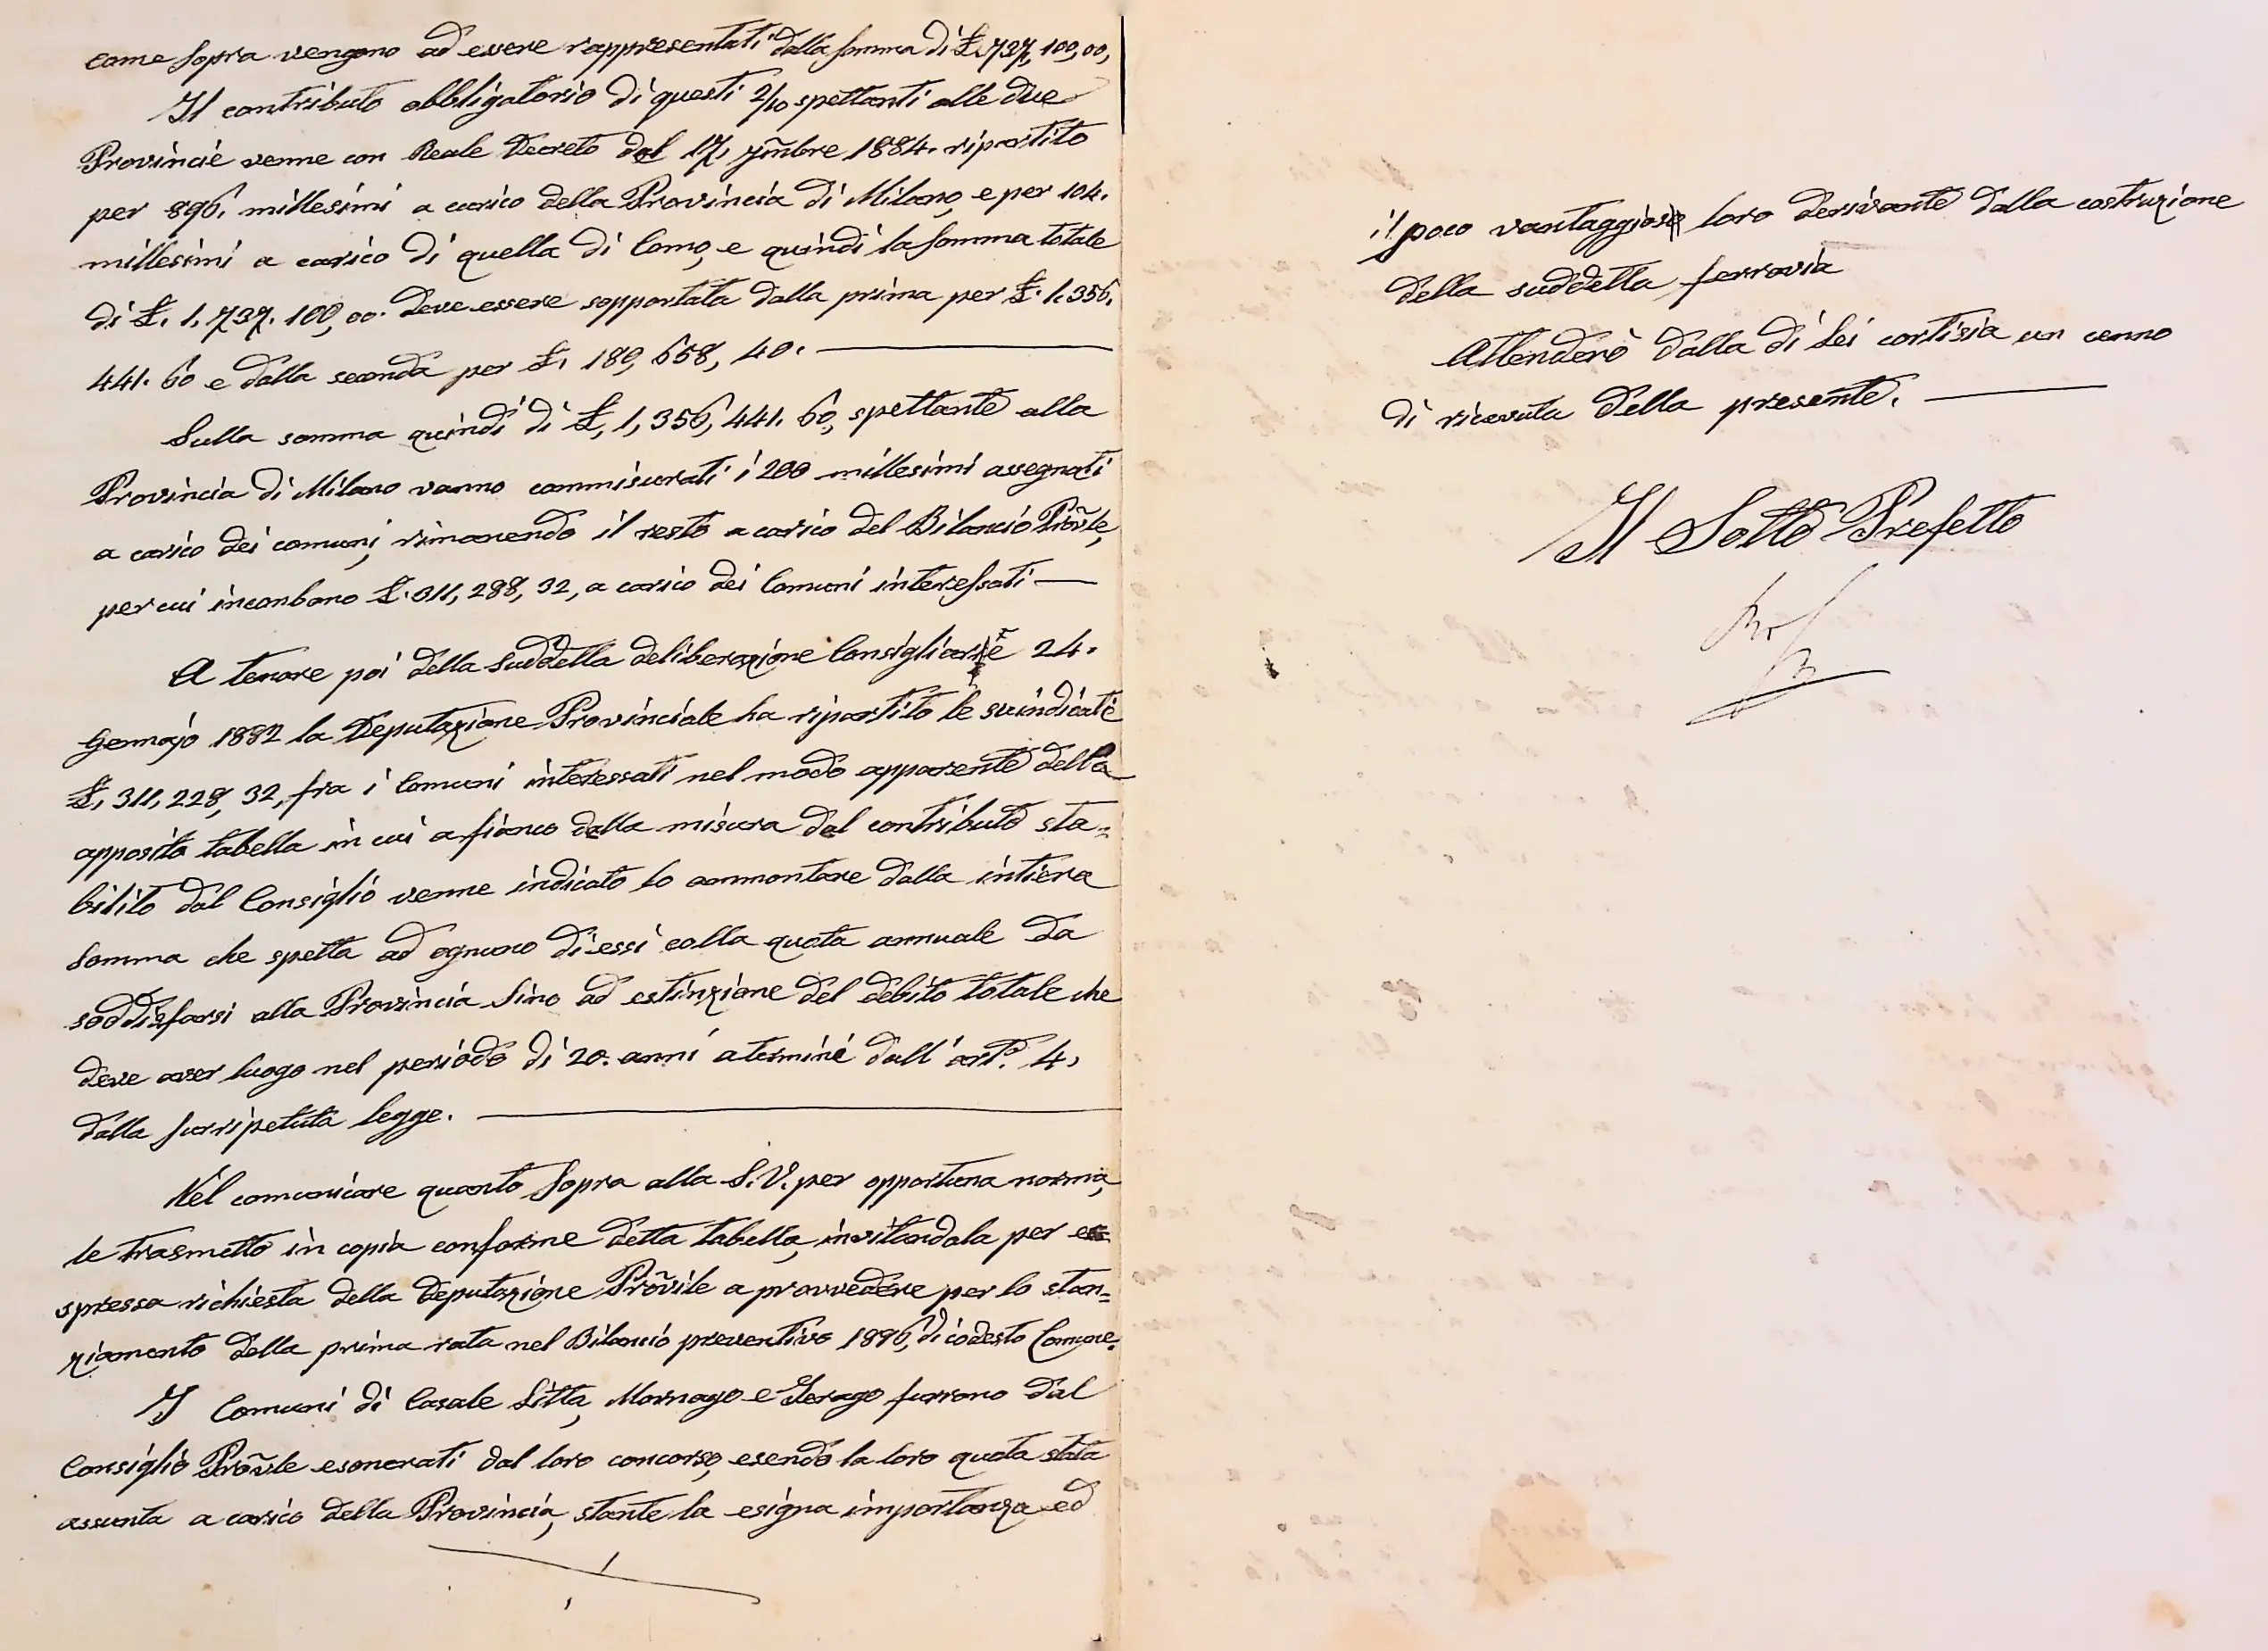 come sopra vengono ad essere rappresentati dalla somma di £. 737,100,00,
Il contributo obbligatorio di questi 2/10 spettanti alle due
Provincie venne con Reale Decreto del 17, 9mbre 1884. ripartito
per 896. millesimi a carico della Provincia di Milano, e per 104.
millesimi a carico di quella di Como, e quindi la somma totale
di £. 1. 737. 100, 00. deve essere sopportata dalla prima per £. 1. 356.
441. 60 e dalla seconda per £. 180, 658, 40.
Sulla somma quindi di £, 1, 356, 441. 60, spettante alla
Provincia di Milano vanno commisurati i 200 millesimi assegnati
a carico dei comuni, rimanendo il resto a carico del Bilancio Prov̄le,
per cui inconbono £. 311, 288, 32, a carico dei Comuni interessati
A tenore poi della suddetta deliberazione Consigliare 24.
Gennajo 1882 la Deputazione Provinciale ha ripartito le suindicate
£, 311, 228, 32, fra i Comuni interessati nel modo apparente della
apposita tabella in cui a fianco della misura del contributo sta=
bilito dal Consiglio venne indicato lo ammontare dalla intiera
somma che spetta ad ognuno di essi colla quota annuale da
soddisfarsi alla Provincia sino ad estinzione del debito totale che
deve aver luogo nel periodo di 20. anni a termini dall' art.° 4,
dalla surripetuta legge.
Nel comunicare quanto sopra alla S. V. per opportuna norma,
le trasmetto in copia conforme detta tabella, invitandola per e
spressa richiesta della Deputazione Prov̄ile a provvedere per lo stan=
ziamento della prima rata nel Bilancio preventivo 1896, di codesto Comune.
I Comuni di Casale Litta, Mornago e Jerago furrono dal
Consiglio Prov̄le esonerati dal loro concorso, esendo la loro quota stata
assunta a carico della Provincia, stante la esigna importanza ed
il poco vantaggio loro derivante dalla costruzione
della suddetta ferrovia
Attenderò dalla di Lei cortisia un cenno
di ricevuta della presente.
Il Sotto Prefetto